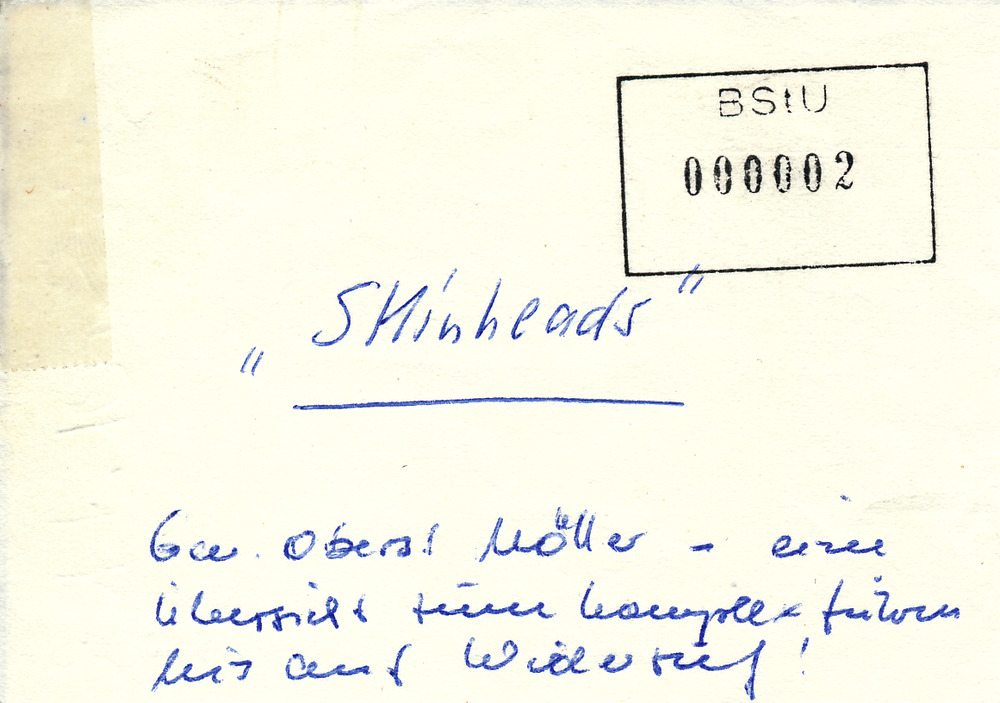 BStU
000002
„Skinheads"
Gen. Oberst Möller - eine
Übersicht zum Komplex führen
bis auf Widerruf!